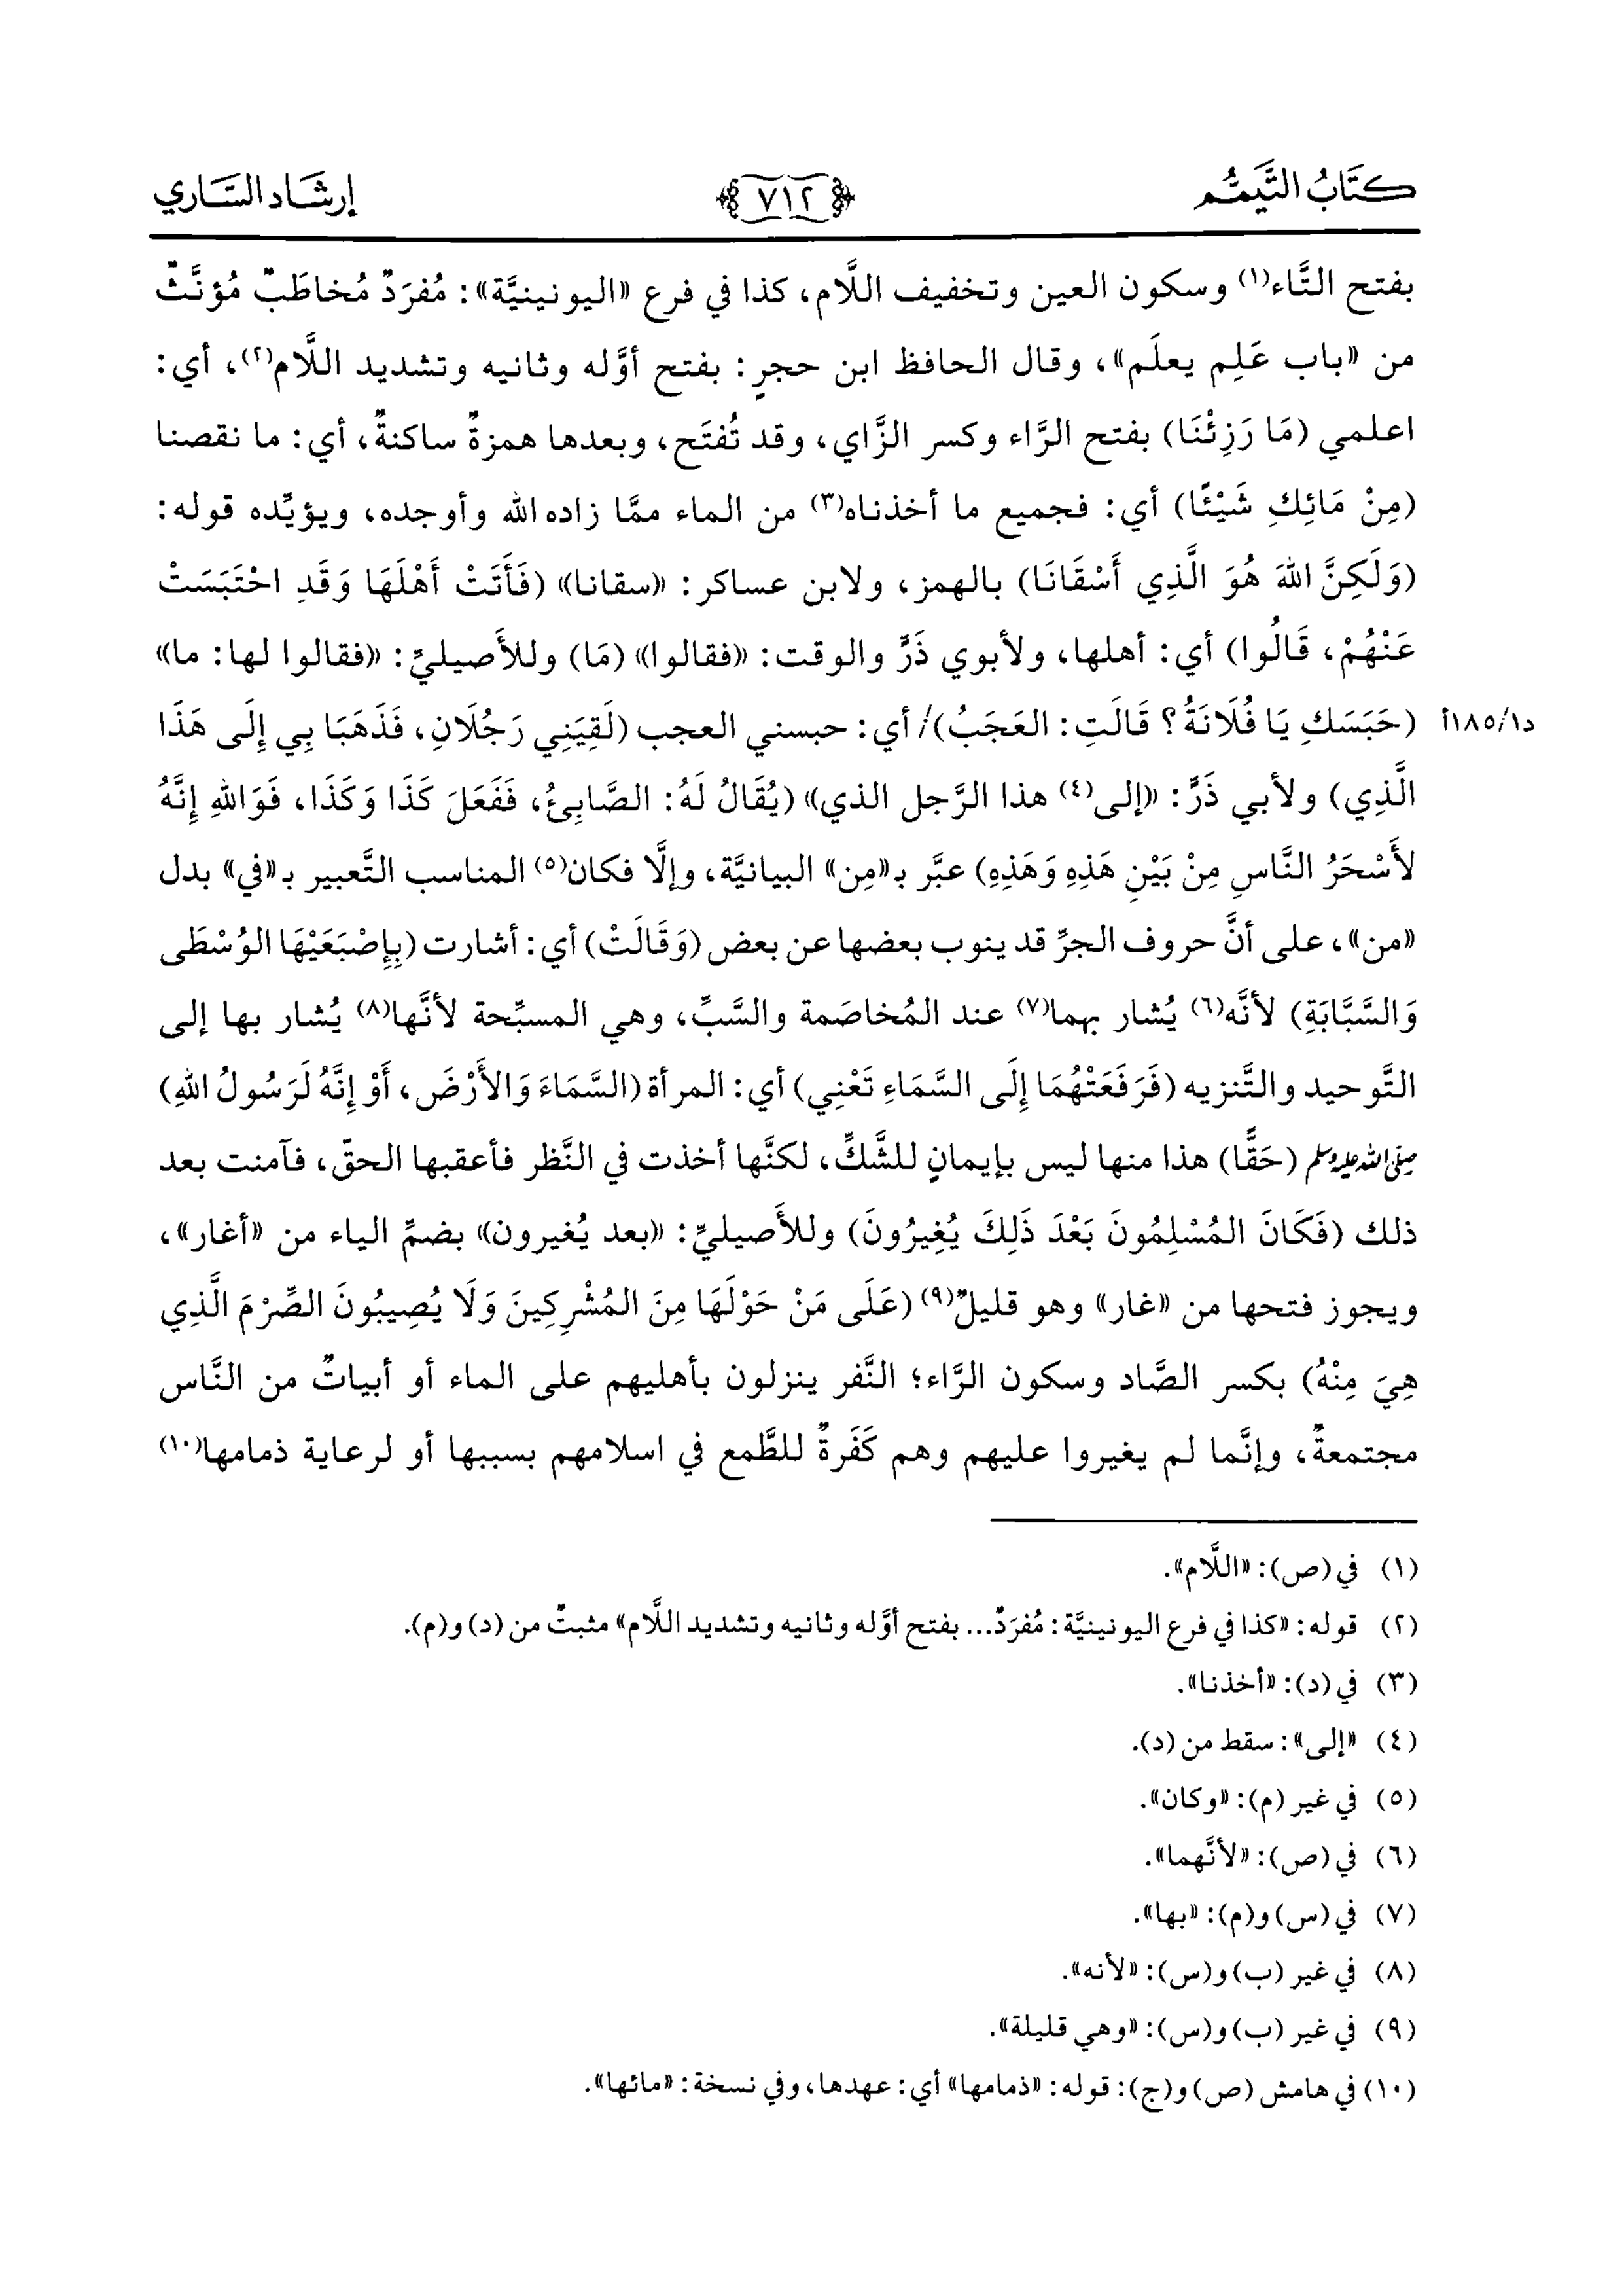 كتاب التَّيمُّم
﴿٧١٢﴾
إرشاد السَّاري
بفتح التَّاء(١) وسكون العين وتخفيف اللَّام، كذا في فرع «اليونينيَّة»: مُفرَدٌ مُخاطَبٌ مُؤنَّثٌ
من «باب عَلِم يعلَم»، وقال الحافظ ابن حجرٍ: بفتح أوَّله وثانيه وتشديد اللَّام(٢)، أي:
اعلمي (مَا رَزِئْنَا) بفتح الرَّاء وكسر الزَّاي، وقد تُفتَح، وبعدها همزةٌ ساكنةٌ، أي: ما نقصنا
(مِنْ مَائِكِ شَيْئًا) أي: فجميع ما أخذناه(٣) من الماء ممَّا زاده الله وأوجده، ويؤيِّده قوله:
(وَلَكِنَّ اللهَ هُوَ الَّذِي أَسْقَانَا) بالهمز، ولابن عساكر: «سقانا» (فَأَتَتْ أَهْلَهَا وَقَدِ احْتَبَسَتْ
عَنْهُمْ، قَالُوا) أي: أهلها، ولأبوي ذَرٍّ والوقت: «فقالوا» (مَا) وللأَصيليِّ: «فقالوا لها: ما»
(حَبَسَكِ يَا فُلَانَةُ؟ قَالَتِ: العَجَبُ)/ أي: حبسني العجب (لَقِيَنِي رَجُلَانِ، فَذَهَبَا بِي إِلَى هَذَا
د١/١٨٥أ
الَّذِي) ولأبي ذَرٍّ: «إلى(٤) هذا الرَّجل الذي» (يُقَالُ لَهُ: الصَّابِئُ، فَفَعَلَ كَذَا وَكَذَا، فَوَاللهِ إِنَّهُ
لأَسْحَرُ النَّاسِ مِنْ بَيْنِ هَذِهِ وَهَذِهِ) عبَّر بـ«مِن» البيانيَّة، وإلَّا فكان(٥) المناسب التَّعبير بـ«في» بدل
«من»، على أنَّ حروف الجرِّ قد ينوب بعضها عن بعض (وَقَالَتْ) أي: أشارت (بِإِصْبَعَيْهَا الوُسْطَى
وَالسَّبَّابَةِ) لأنَّه(٦) يُشار بهما(٧) عند المُخاصَمة والسَّبِّ، وهي المسبِّحة لأنَّها(٨) يُشار بها إلى
التَّوحيد والتَّنزيه (فَرَفَعَتْهُمَا إِلَى السَّمَاءِ تَعْنِي) أي: المرأة (السَّمَاءَ وَالأَرْضَ، أَوْ إِنَّهُ لَرَسُولُ اللهِ)
صلى الله عليه وسلم (حَقًّا) هذا منها ليس بإيمانٍ للشَّكِّ، لكنَّها أخذت في النَّظر فأعقبها الحقّ، فآمنت بعد
ذلك (فَكَانَ المُسْلِمُونَ بَعْدَ ذَلِكَ يُغِيرُونَ) وللأَصيليِّ: «بعد يُغيرون» بضمِّ الياء من «أغار»،
ويجوز فتحها من «غار» وهو قليلٌ(٩) (عَلَى مَنْ حَوْلَهَا مِنَ المُشْرِكِينَ وَلَا يُصِيبُونَ الصِّرْمَ الَّذِي
هِيَ مِنْهُ) بكسر الصَّاد وسكون الرَّاء؛ النَّفر ينزلون بأهليهم على الماء أو أبياتٌ من النَّاس
مجتمعةٌ، وإنَّما لم يغيروا عليهم وهم كَفَرةٌ للطَّمع في اسلامهم بسببها أو لرعاية ذمامها(١٠)
(١) في (ص): «اللَّام».
(٢) قوله: «كذا في فرع اليونينيَّة: مُفرَدٌ... بفتح أوَّله وثانيه وتشديد اللَّام» مثبتٌ من (د) و(م).
(٣) في (د): «أخذنا».
(٤) «إلى»: سقط من (د).
(٥) في غير (م): «وكان».
(٦) في (ص): «لأنَّهما».
(٧) في (س) و(م): «بها».
(٨) في غير (ب) و(س): «لأنه».
(٩) في غير (ب) و(س): «وهي قليلة».
(١٠) في هامش (ص) و(ج): قوله: «ذمامها» أي: عهدها، وفي نسخة: «مائها».